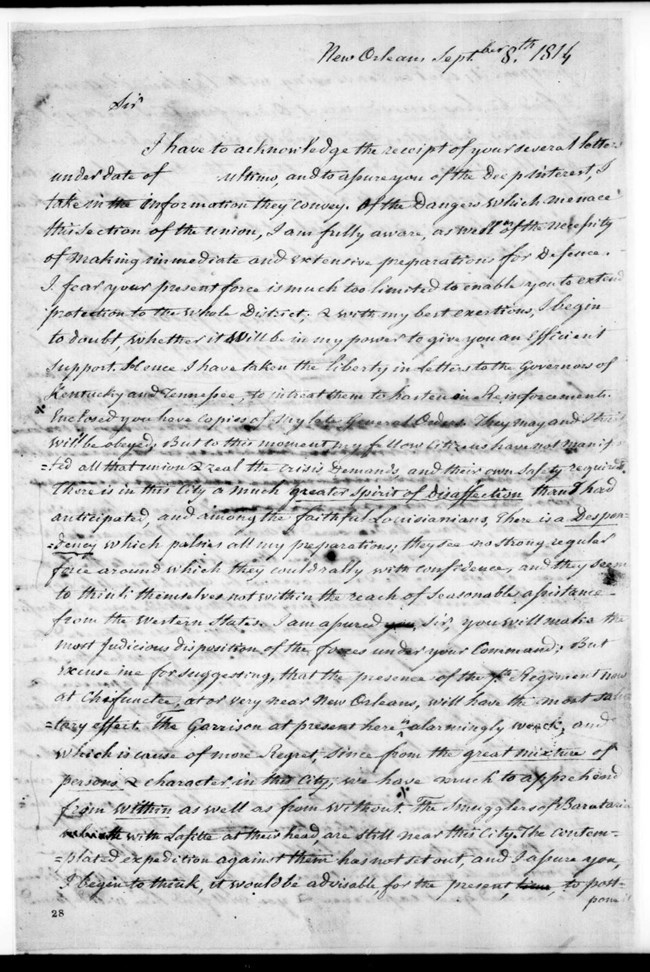 New Orleans Sept.ber 8.th 1814
Sir
I have to acknowledge the receipt of your several letters
under date of ultimo, and to assure you of the deep interest, I
take in the information they convey. Of the dangers which menace
this section of the union, I am fully aware, as well as of the necessity
of making immediate and extensive preparations for Defence.
I fear your present force is much too limited to enable you to extend
protection to the whole District; & with my best exertions, I begin
to doubt, whether it will be in my power to give you an efficient
support. Hence I have taken the liberty in letters to the Governors of
Kentucky and Tennessee, to intreat them to hasten in Reinforcements.
x Enclosed you have Copies of my late General Orders. They may and I trust
will be obeyed; But to this moment my fellow Citizens have not manifes
=ted all that union & zeal the Crisis demands, and their own Safety requires.
There is in this City a much greater Spirit of Disaffection than I had
anticipated, and among the faithful Louisianians, there is a Despon=
=dency which palsies all my preparations; they see no strong regular
force around which they could rally with confidence, and they seem
to think themselves not within the reach of seasonable assistance
from the Western States. I am assured you, Sir, you will make the
most Judicious disposition of the forces under your Command; But
excuse me for suggesting, that the presence of the 7th Regiment now
at Chefuncte, at or very near New Orleans, will have the most salu
=tary effect. The Garrison at present here is alarmingly weak, and
which is cause of more Regret, since from the great mixture of
persons & character in this City, we have much to apprehend
from within as well as from without. The Smugglers of Barataria
with Lafitte at their head, are still near this City. The Contem=
=plated expedition against them has not set out, and I assure you,
I begin to think, it would be advisable, for the present, time, to post-
pone it
28